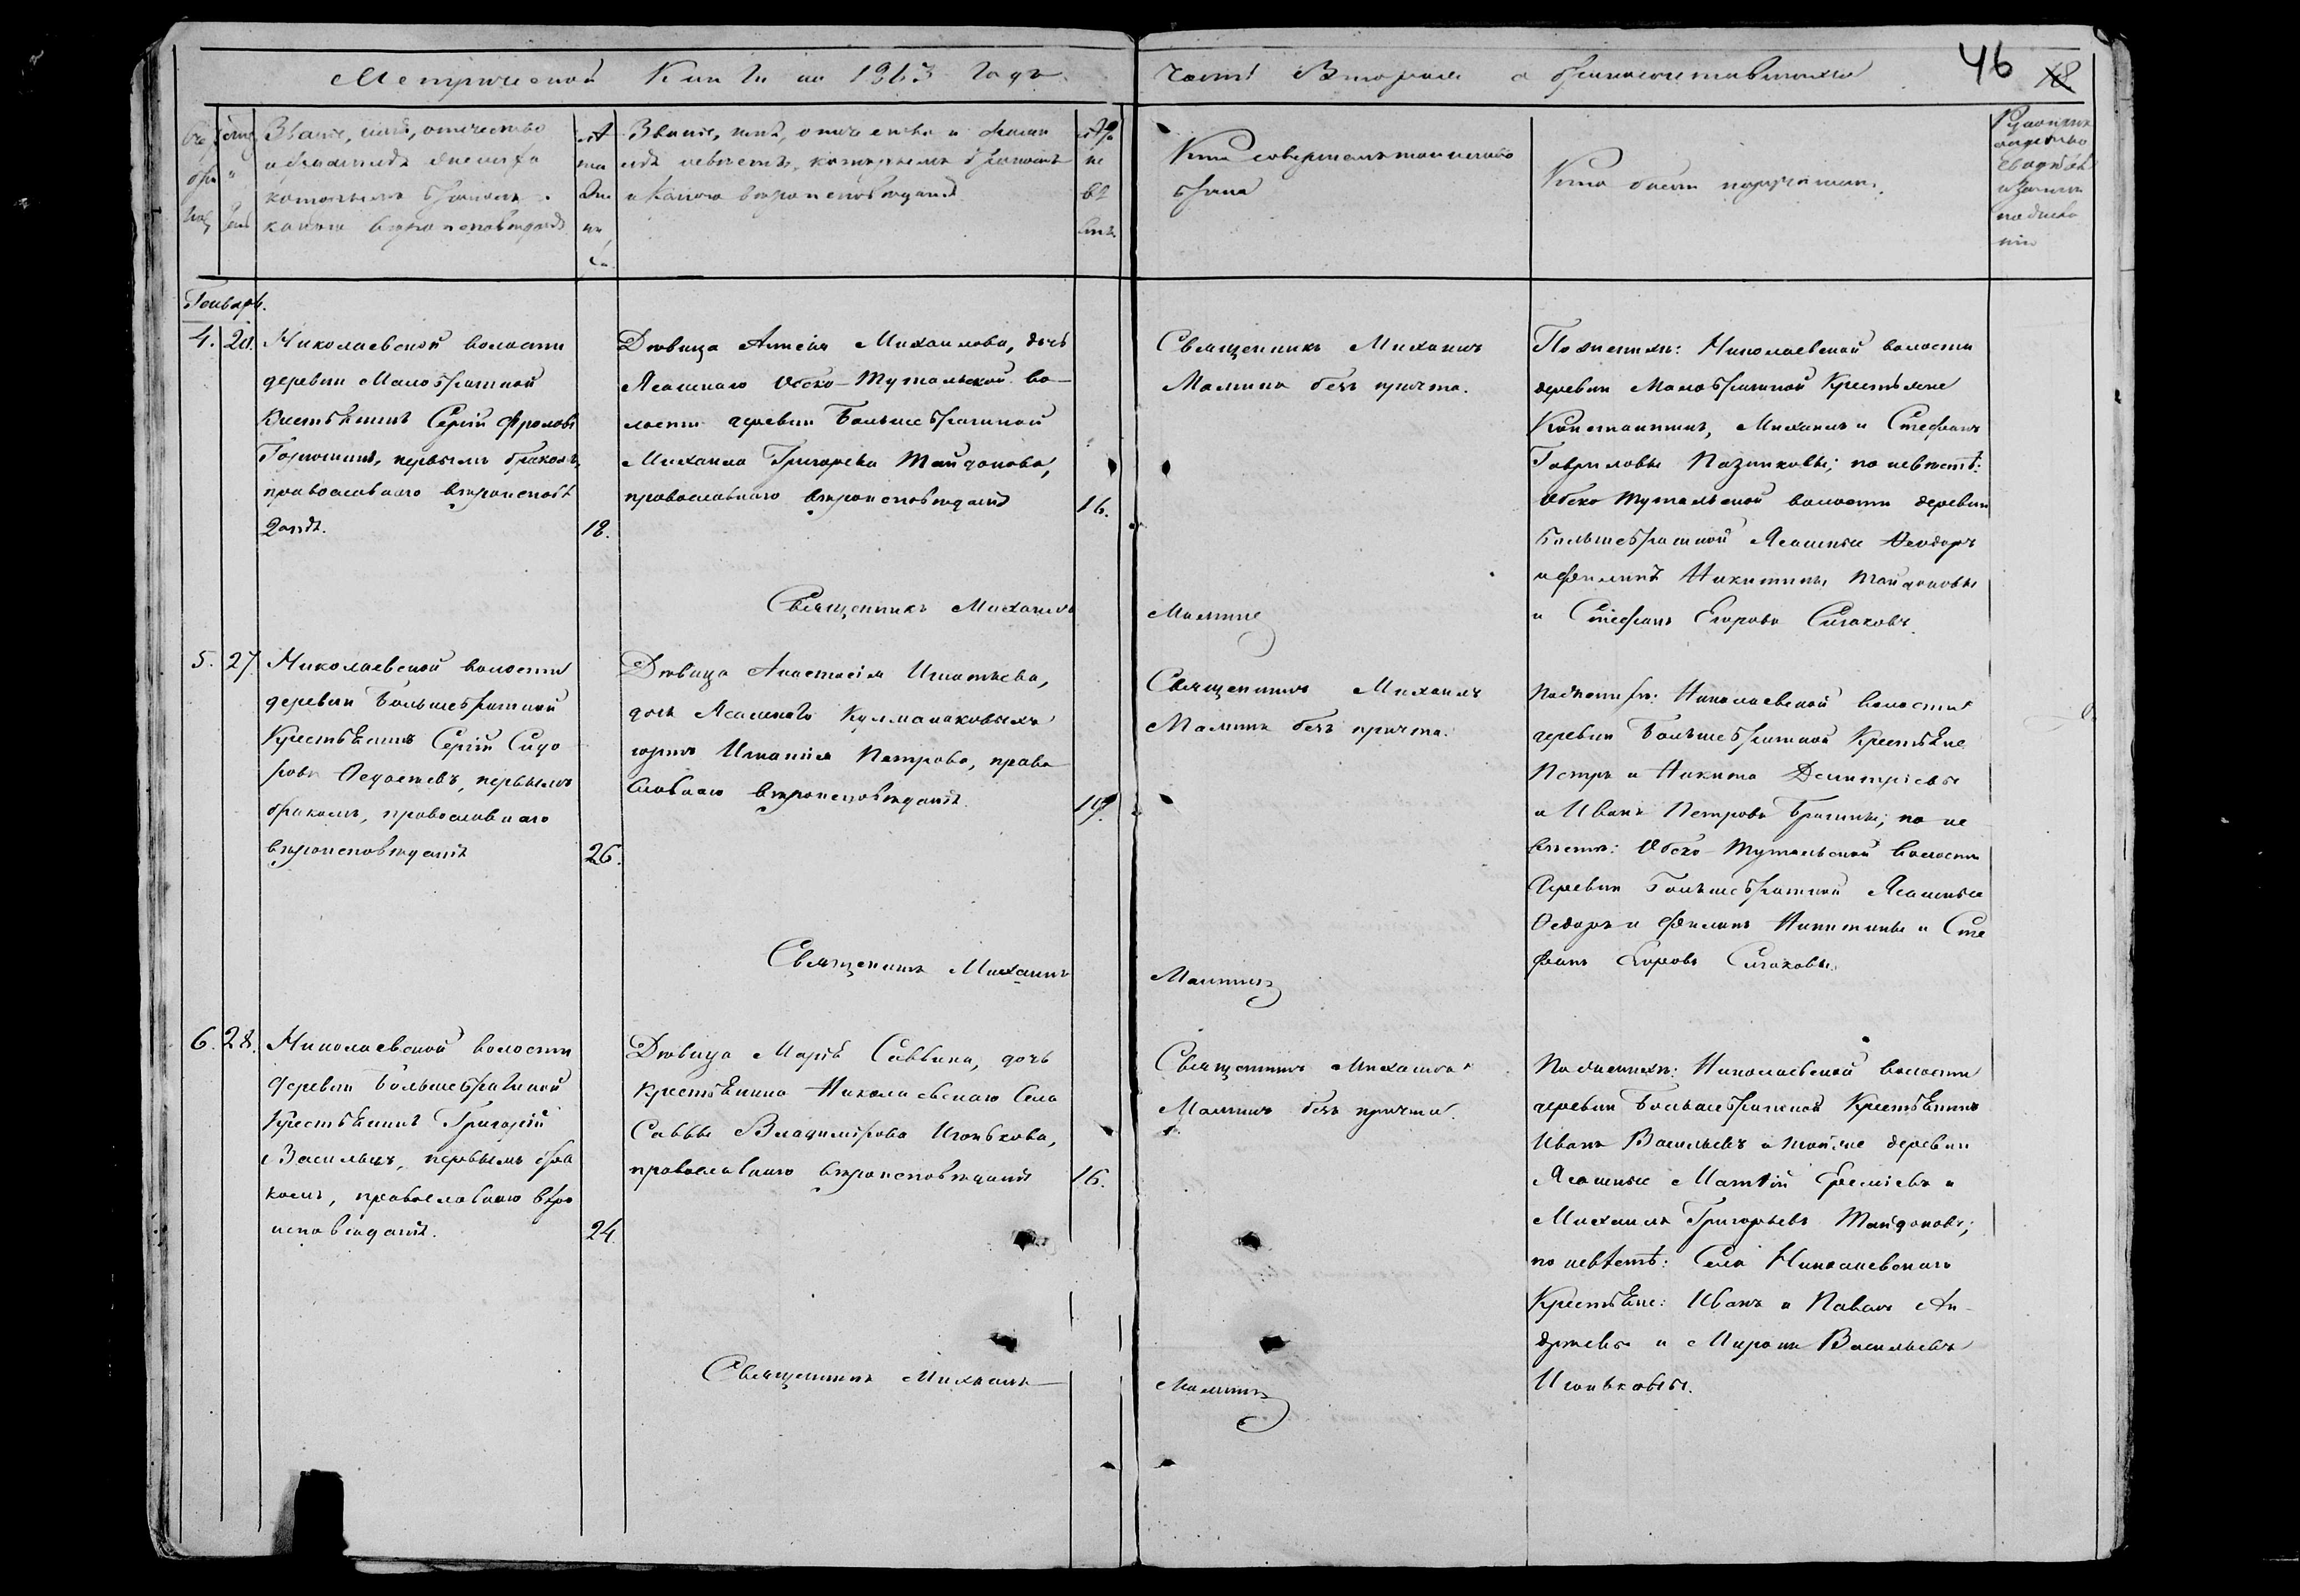 Метрической Книги на 1863 Годъ.
часть Вторая о бракосочетавшихся
46
18
Званіе, имя, отечество
и фамилія жениха
которымъ бракомъ и
какого вѣроисповѣданія
Лѣ
та
Званіе, имя, отечество и фами
лія невѣсты, которымъ бракомъ
и какого вѣроисповѣданія
не
вѣ
сты
Кто совершалъ таинство
брака
Кто были поручители.
Генварь.
4. 20.
Николаевской волости
деревни Малобрагиной
Крестьянинъ Сергій Фроловъ
первымъ бракомъ,
православнаго вѣроисповѣ
данія.
18.
Дѣвица Михаилова, дочь
Ясашнаго Обско-Тутальской во-
лости деревни Большебрагиной
Михаила Григорьева Тайдонова,
православнаго вѣроисповѣданія
16.
Священникъ Михаилъ
Малининъ безъ причта.
По женихѣ: Николаевской волости
деревни Малобрагиной Крестьяне
Константинъ, Михаилъ и Стефанъ
Гавриловы; по невѣстѣ:
Обско Тутальской волости деревни
Большебрагиной Ясашные Ѳеодоръ
и Филипъ Никитины Тайдоновы
и Стефанъ Егоровъ
Священникъ Михаилъ
Малининъ
5. 27.
Николаевской волости
деревни Большебрагиной
Крестьянинъ Сергій Сидо
ровъ первымъ
бракомъ, православнаго
вѣроисповѣданія
26.
Дѣвица Анастасія Игнатьева,
дочь Ясашнаго
юртъ Игнатія Петрова, право
славнаго вѣроисповѣданія.
19.
Священникъ Михаилъ
Малининъ безъ причта.
По женихѣ: Николаевской волости
деревни Большебрагиной Крестьяне
Петръ и Никита Димитріевы
и Иванъ Петровъ Брагины; по не
вѣстѣ: Обско-Тутальской волости
деревни Большебрагиной Ясашные
Ѳедоръ и Филипъ Никитины и Сте
фанъ Егоровъ
Священникъ Михаилъ
Малининъ
6. 28.
Николаевской волости
деревни Большебрагиной
Крестьянинъ Григорій
Васильевъ, первымъ бра
комъ, православнаго вѣро
исповѣданія.
24.
Дѣвица Марія Саввина, дочь
крестьянина Николаевскаго Села
Саввы Владимірова Игонькова,
православнаго вѣроисповѣданія
16.
Священникъ Михаилъ
Малининъ безъ причта.
По женихѣ: Николаевской волости
деревни Большебрагиной Крестьянинъ
Иванъ Васильевъ и той же деревни
Ясашные Матвій Еремѣевъ и
Михаилъ Григорьевъ Тайдоновъ;
по невѣстѣ: Села Николаевскаго
Крестьяне: Иванъ и Павелъ Ан-
дреевы и Миронъ Васильевъ
Игоньковы.
Священникъ Михаилъ
Малининъ